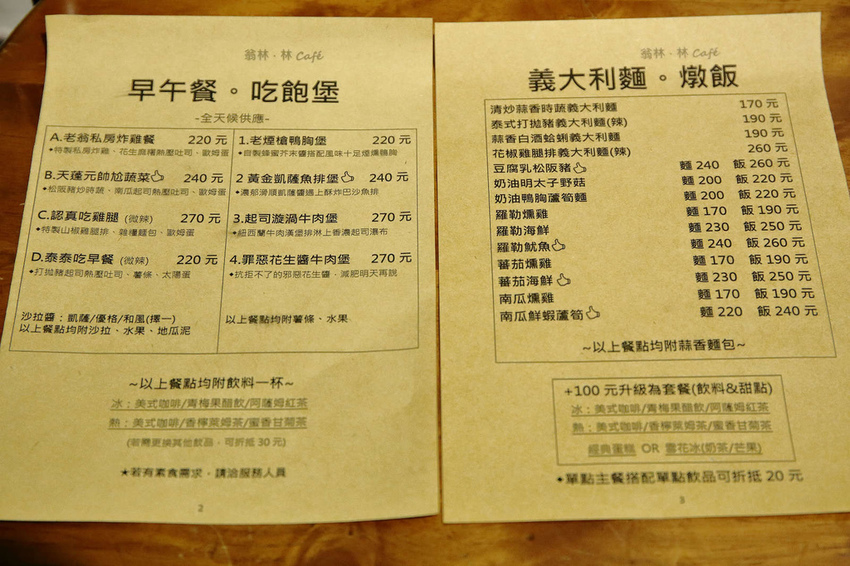 翁林．林 Café
早午餐。吃飽堡
-全天候供應-
A.老翁私房炸雞餐 220 元
◆特製私房炸雞、花生麻糬熱壓吐司、歐姆蛋
B.天蓬元帥尬蔬菜 240 元
◆松阪豬炒時蔬、南瓜起司熱壓吐司、歐姆蛋
C.認真吃雞腿 (微辣) 270 元
◆特製山椒雞腿排、雜糧麵包、歐姆蛋
D.泰泰吃早餐 (微辣) 220 元
◆打拋豬起司熱壓吐司、薯條、太陽蛋
沙拉醬：凱薩/優格/和風(擇一)
以上餐點均附沙拉、水果、地瓜泥
1.老煙槍鴨胸堡 220 元
◆自製蜂蜜芥末醬搭配風味十足煙燻鴨胸
2 黃金凱薩魚排堡 240 元
◆濃郁滑順凱薩醬遇上酥炸巴沙魚排
3.起司漩渦牛肉堡 270 元
◆紐西蘭牛肉漢堡排淋上香濃起司瀑布
4.罪惡花生醬牛肉堡 270 元
◆抗拒不了的邪惡花生醬，減肥明天再說
以上餐點均附薯條、水果
~以上餐點均附飲料一杯~
冰：美式咖啡/青梅果醋飲/阿薩姆紅茶
熱：美式咖啡/香檸萊姆茶/蜜香甘菊茶
(若需更換其他飲品，可折抵 30 元)
★若有素食需求，請洽服務人員
2
翁林．林 Café
義大利麵。燉飯
清炒蒜香時蔬義大利麵 170 元
泰式打拋豬義大利麵(辣) 190 元
蒜香白酒蛤蜊義大利麵 190 元
花椒雞腿排義大利麵(辣) 260 元
豆腐乳松阪豬 麵 240 飯 260 元
奶油明太子野菇 麵 200 飯 220 元
奶油鴨胸蘆筍麵 麵 200 飯 220 元
羅勒燻雞 麵 170 飯 190 元
羅勒海鮮 麵 230 飯 250 元
羅勒魷魚 麵 240 飯 260 元
蕃茄燻雞 麵 170 飯 190 元
蕃茄海鮮 麵 230 飯 250 元
南瓜燻雞 麵 170 飯 190 元
南瓜鮮蝦蘆筍 麵 220 飯 240 元
~以上餐點均附蒜香麵包~
+100 元升級為套餐(飲料&甜點)
冰：美式咖啡/青梅果醋飲/阿薩姆紅茶
熱：美式咖啡/香檸萊姆茶/蜜香甘菊茶
經典蛋糕 OR 雪花冰(奶茶/芒果)
◆單點主餐搭配單點飲品可折抵 20 元
3